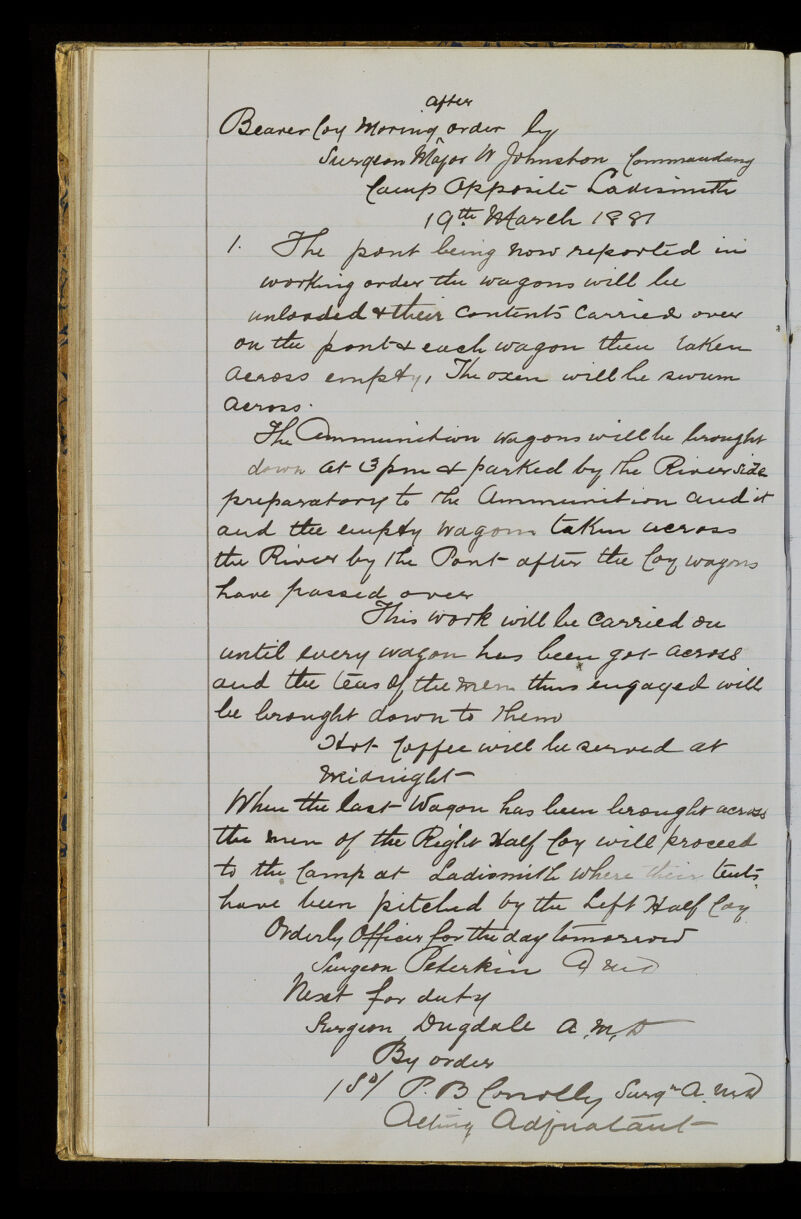 after
Bearer Coy Morning order by
Surgeon Major W Johnston Commanding
Camp Opposite Ladismith
19th March 1881
1. The pont being now reported in
working order the wagons will be
unloaded & their contents carried over
on the pont & each wagon then taken
across empty, The oxen will be swum
across.
The Ammunition Wagons will be brought
down at 3 pm & parked by the River side
preparatory to the Ammunition and it
and the empty wagons taken across
the River by the Pont after the Coy wagons
have passed over
This work will be carried on
until every wagon has been got across
and the teas of the men thus engaged will
be brought down to them
Hot Coffee will be served at
Midnight
When the last Wagon has been brought across
the men of the Right Half Coy will proceed
to the Camp at Ladismith where their tents
have been pitched by the Left Half Coy
Orderly Officer for the day tomorrow
Surgeon Peterkin A M D
Next for duty
Surgeon Dugdale A. M. D
By order
/Sd/ P. B Conolly Surgn A. M D
Acting Adjuatant